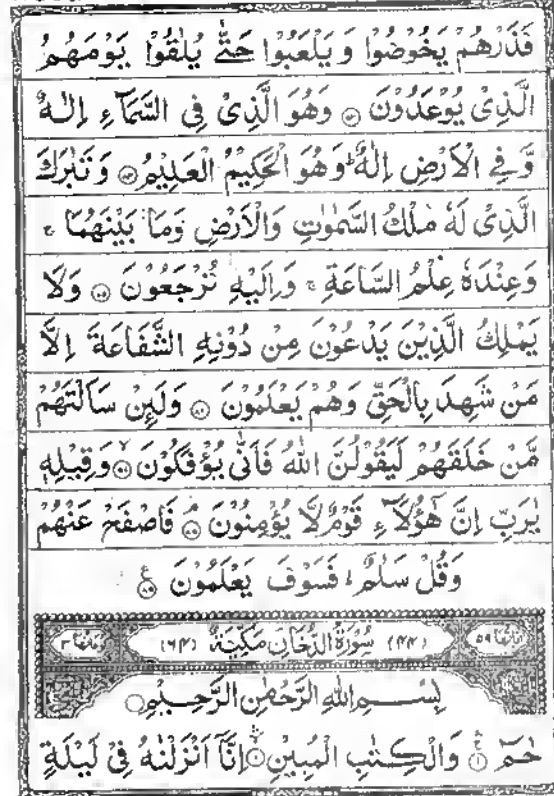 فَذَرْهُمْ يَخُوْضُوْا وَ يَلْعَبُوْا حَتّٰى يُلٰقُوْا يَوْمَهُمُ
الَّذِىْ يُوْعَدُوْنَ ۝۸۳ وَهُوَ الَّذِىْ فِى السَّمَآءِ اِلٰهٌ
وَّفِى الْاَرْضِ اِلٰهٌ ؕ وَهُوَ الْحَكِيْمُ الْعَلِيْمُ ۝۸۴ وَتَبٰرَكَ
الَّذِىْ لَهٗ مُلْكُ السَّمٰوٰتِ وَالْاَرْضِ وَمَا بَيْنَهُمَا ۚ
وَعِنْدَهٗ عِلْمُ السَّاعَةِ ۚ وَاِلَيْهِ تُرْجَعُوْنَ ۝۸۵ وَلَا
يَمْلِكُ الَّذِيْنَ يَدْعُوْنَ مِنْ دُوْنِهِ الشَّفَاعَةَ اِلَّا
مَنْ شَهِدَ بِالْحَقِّ وَهُمْ يَعْلَمُوْنَ ۝۸۶ وَلَئِنْ سَاَلْتَهُمْ
مَّنْ خَلَقَهُمْ لَيَقُوْلُنَّ اللّٰهُ فَاَنّٰى يُؤْفَكُوْنَ ۝۸۷ وَقِيْلِهٖ
يٰرَبِّ اِنَّ هٰٓؤُلَآءِ قَوْمٌ لَّا يُؤْمِنُوْنَ ۝۸۸ فَاصْفَحْ عَنْهُمْ
وَقُلْ سَلٰمٌ ؕ فَسَوْفَ يَعْلَمُوْنَ ۝۸۹
اٰيَاتُهَا ۵۹ (۴۴) سُوْرَةُ الدُّخَانِ مَكِّيَّةٌ (۶۴) رُكُوْعَاتُهَا ۳
بِسْمِ اللّٰهِ الرَّحْمٰنِ الرَّحِيْمِ
حٰمٓ ۝۱ وَالْكِتٰبِ الْمُبِيْنِ ۝۲ اِنَّاۤ اَنْزَلْنٰهُ فِىْ لَيْلَةٍ